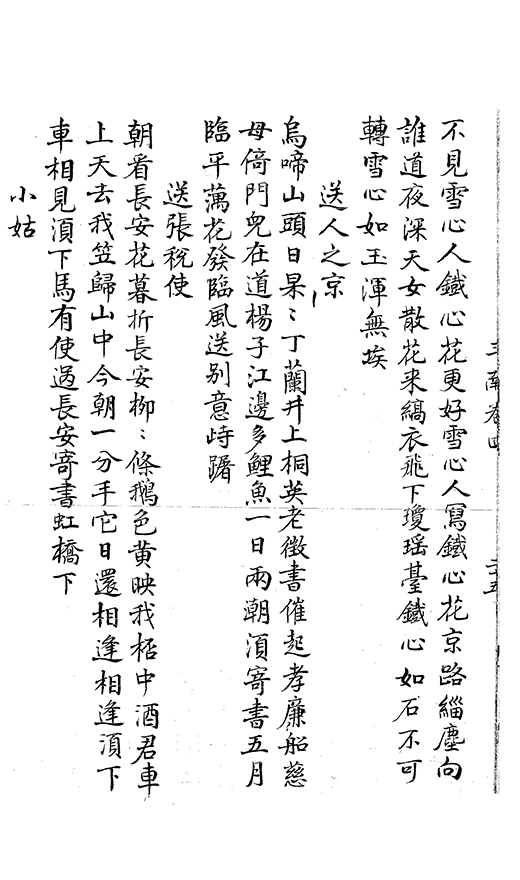 不見雪心人鐵心花更好雪心人寫鐵心花京路緇塵向
誰道夜深天女散花来縞衣飛下瓊瑶臺鐵心如石不可
轉雪心如玉渾無埃
送人之京
烏啼山頭日杲〻丁蘭井上桐英老徵書催起孝廉船慈
母倚門兒在道楊子江邊多鯉魚一日兩潮須寄書五月
臨平藕花發臨風送别意峙躇
送張稅使
朝看長安花暮折長安栁〻條鵝色黄映我桮中酒君車
上天去我笠歸山中今朝一分手它日還相逢相逢湏下
車相見湏下馬有使過長安寄書虹橋下
小姑